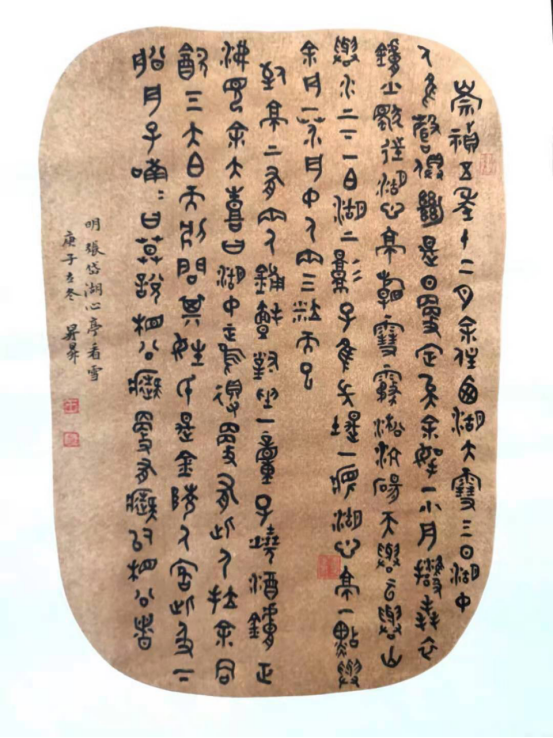 崇禎五年十二月余住西湖大雪三日湖中
人鳥聲俱絕是日更定矣余拏一小舟擁毳衣
爐火獨往湖心亭看雪霧凇沆碭天與云與山
與水上下一白湖上影子惟長堤一痕湖心亭一點與
余舟一芥舟中人兩三粒而已
到亭上有兩人鋪氈對坐一童子燒酒爐正
沸見余大喜曰湖中焉得更有此人拉余同
飲三大白而別問其姓氏是金陵人客此及下
船舟子喃喃曰莫說相公癡更有癡似相公者
明 張岱湖心亭看雪
庚子立冬